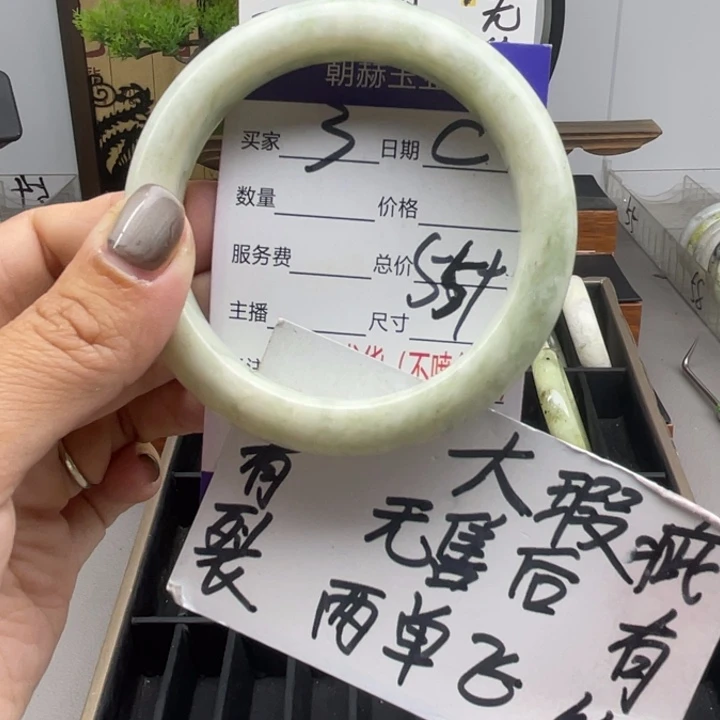 无
朝赫玉
买家 3 日期 C
数量 价格
服务费 总价
主播 尺寸
(不喷
有裂
大瑕疵
无售后
有
两单飞